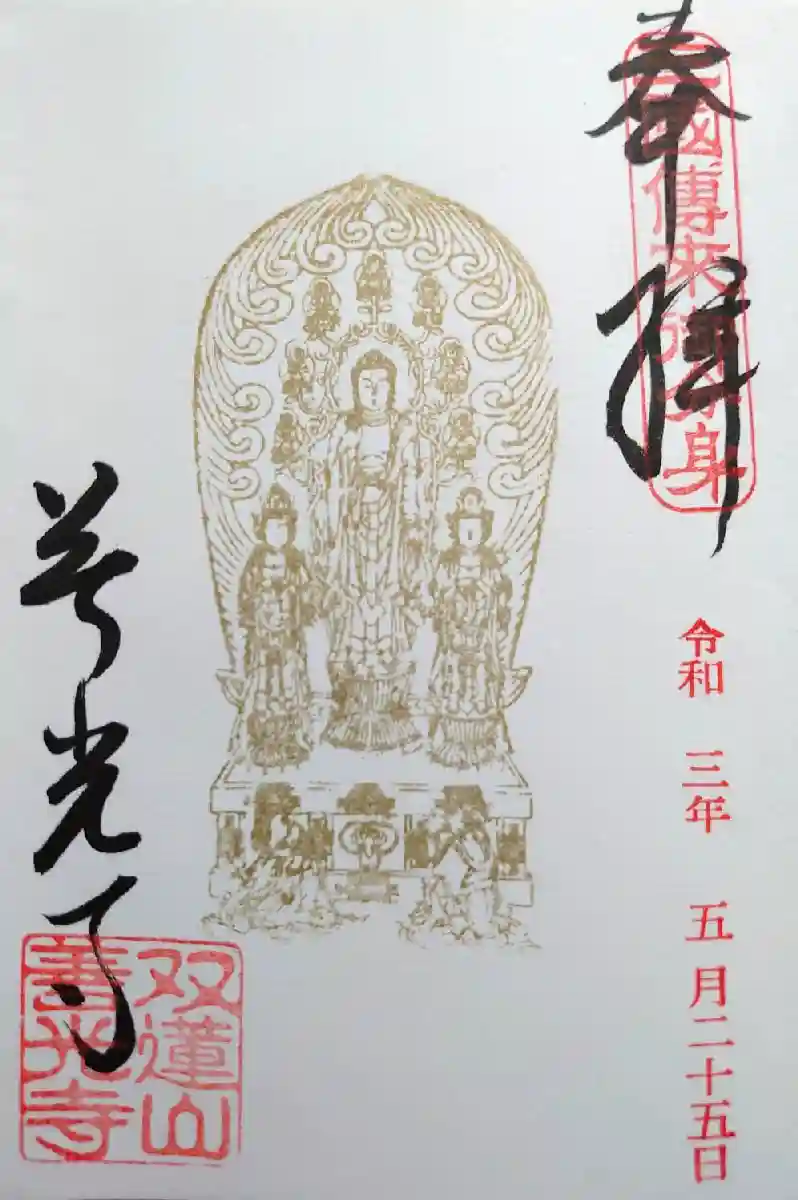 奉拝
三國傳来御分身
令和 三年 五月二十五日
善光寺
双蓮山
善光寺